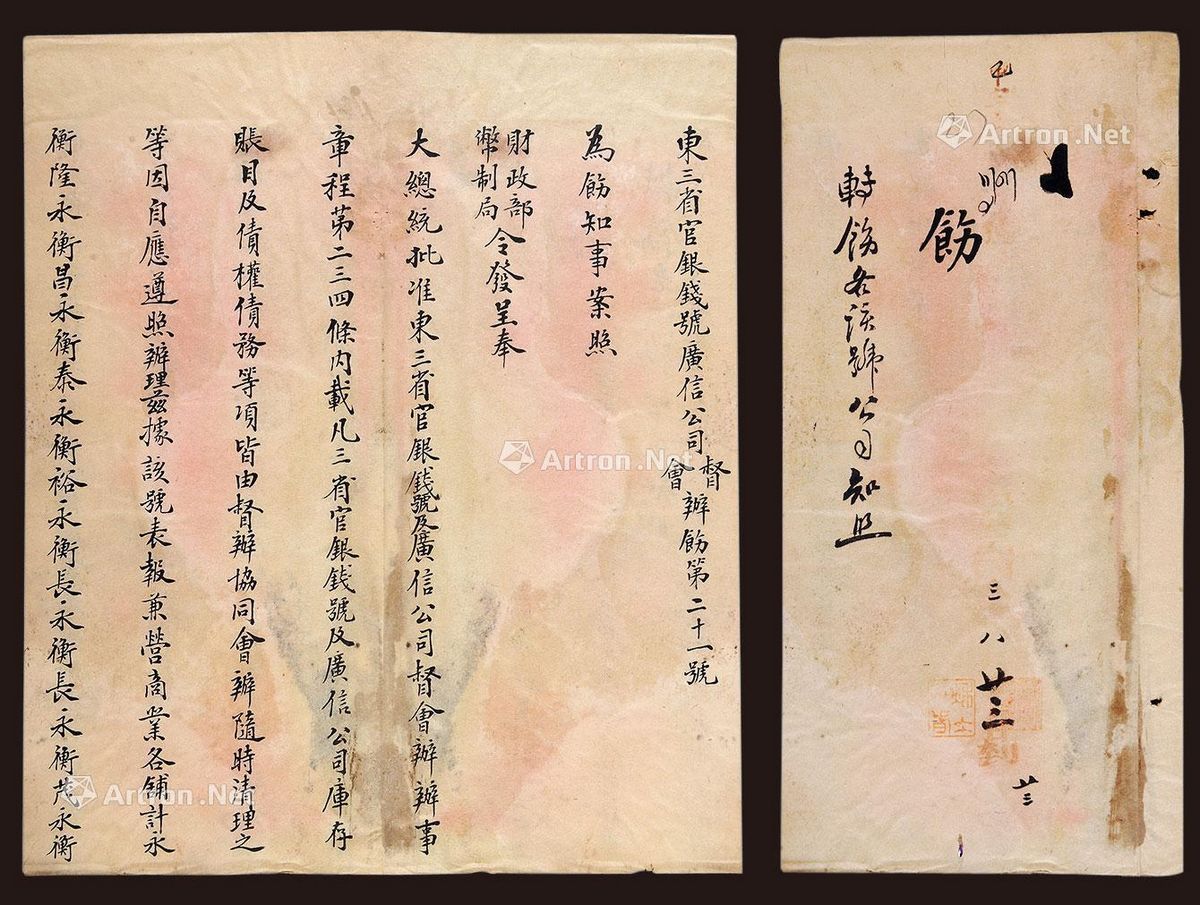 東三省官銀錢號廣信公司督會辦飭第二十一號
為飭知事案照
財政部
幣制局令發呈奉
大總統批准東三省官銀錢號及廣信公司督會辦辦事
章程第二三四條內載凡三省官銀錢號及廣信公司庫存
賬目及債權債務等項皆由督辦協同會辦隨時清理之
等因自應遵照辦理茲據該號表報兼營商業各舖計永
衡隆永衡昌永衡泰永衡裕永衡長永衡長永衡茂永衡
飭
轉飭各該號公司知照
三 八 廿三
到
廿三
Artron.Net
Artron.Net
Artron.Net
Artron.Net